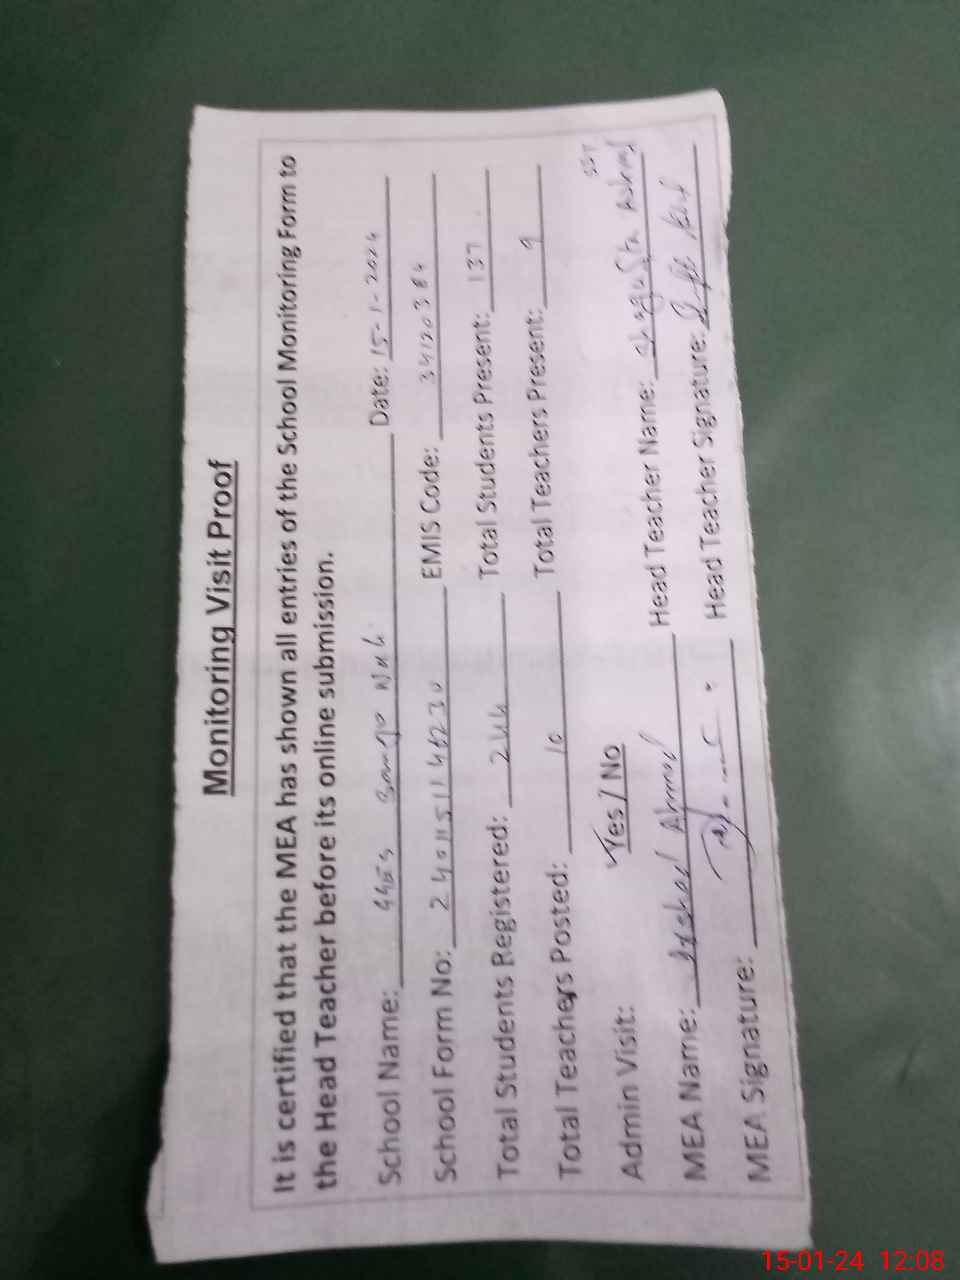 Monitoring Visit Proof
It is certified that the MEA has shown all entries of the School Monitoring Form to
the Head Teacher before its online submission.
School Name: Date: 15-1-2024
School Form No: EMIS Code: 34120384
Total Students Registered: 244 Total Students Present: 137
Total Teachers Posted: 10 Total Teachers Present: 9
Admin Visit: Yes / No
MEA Name: Ahmad Head Teacher Name: SST
MEA Signature: Head Teacher Signature:
15-01-24 12:08